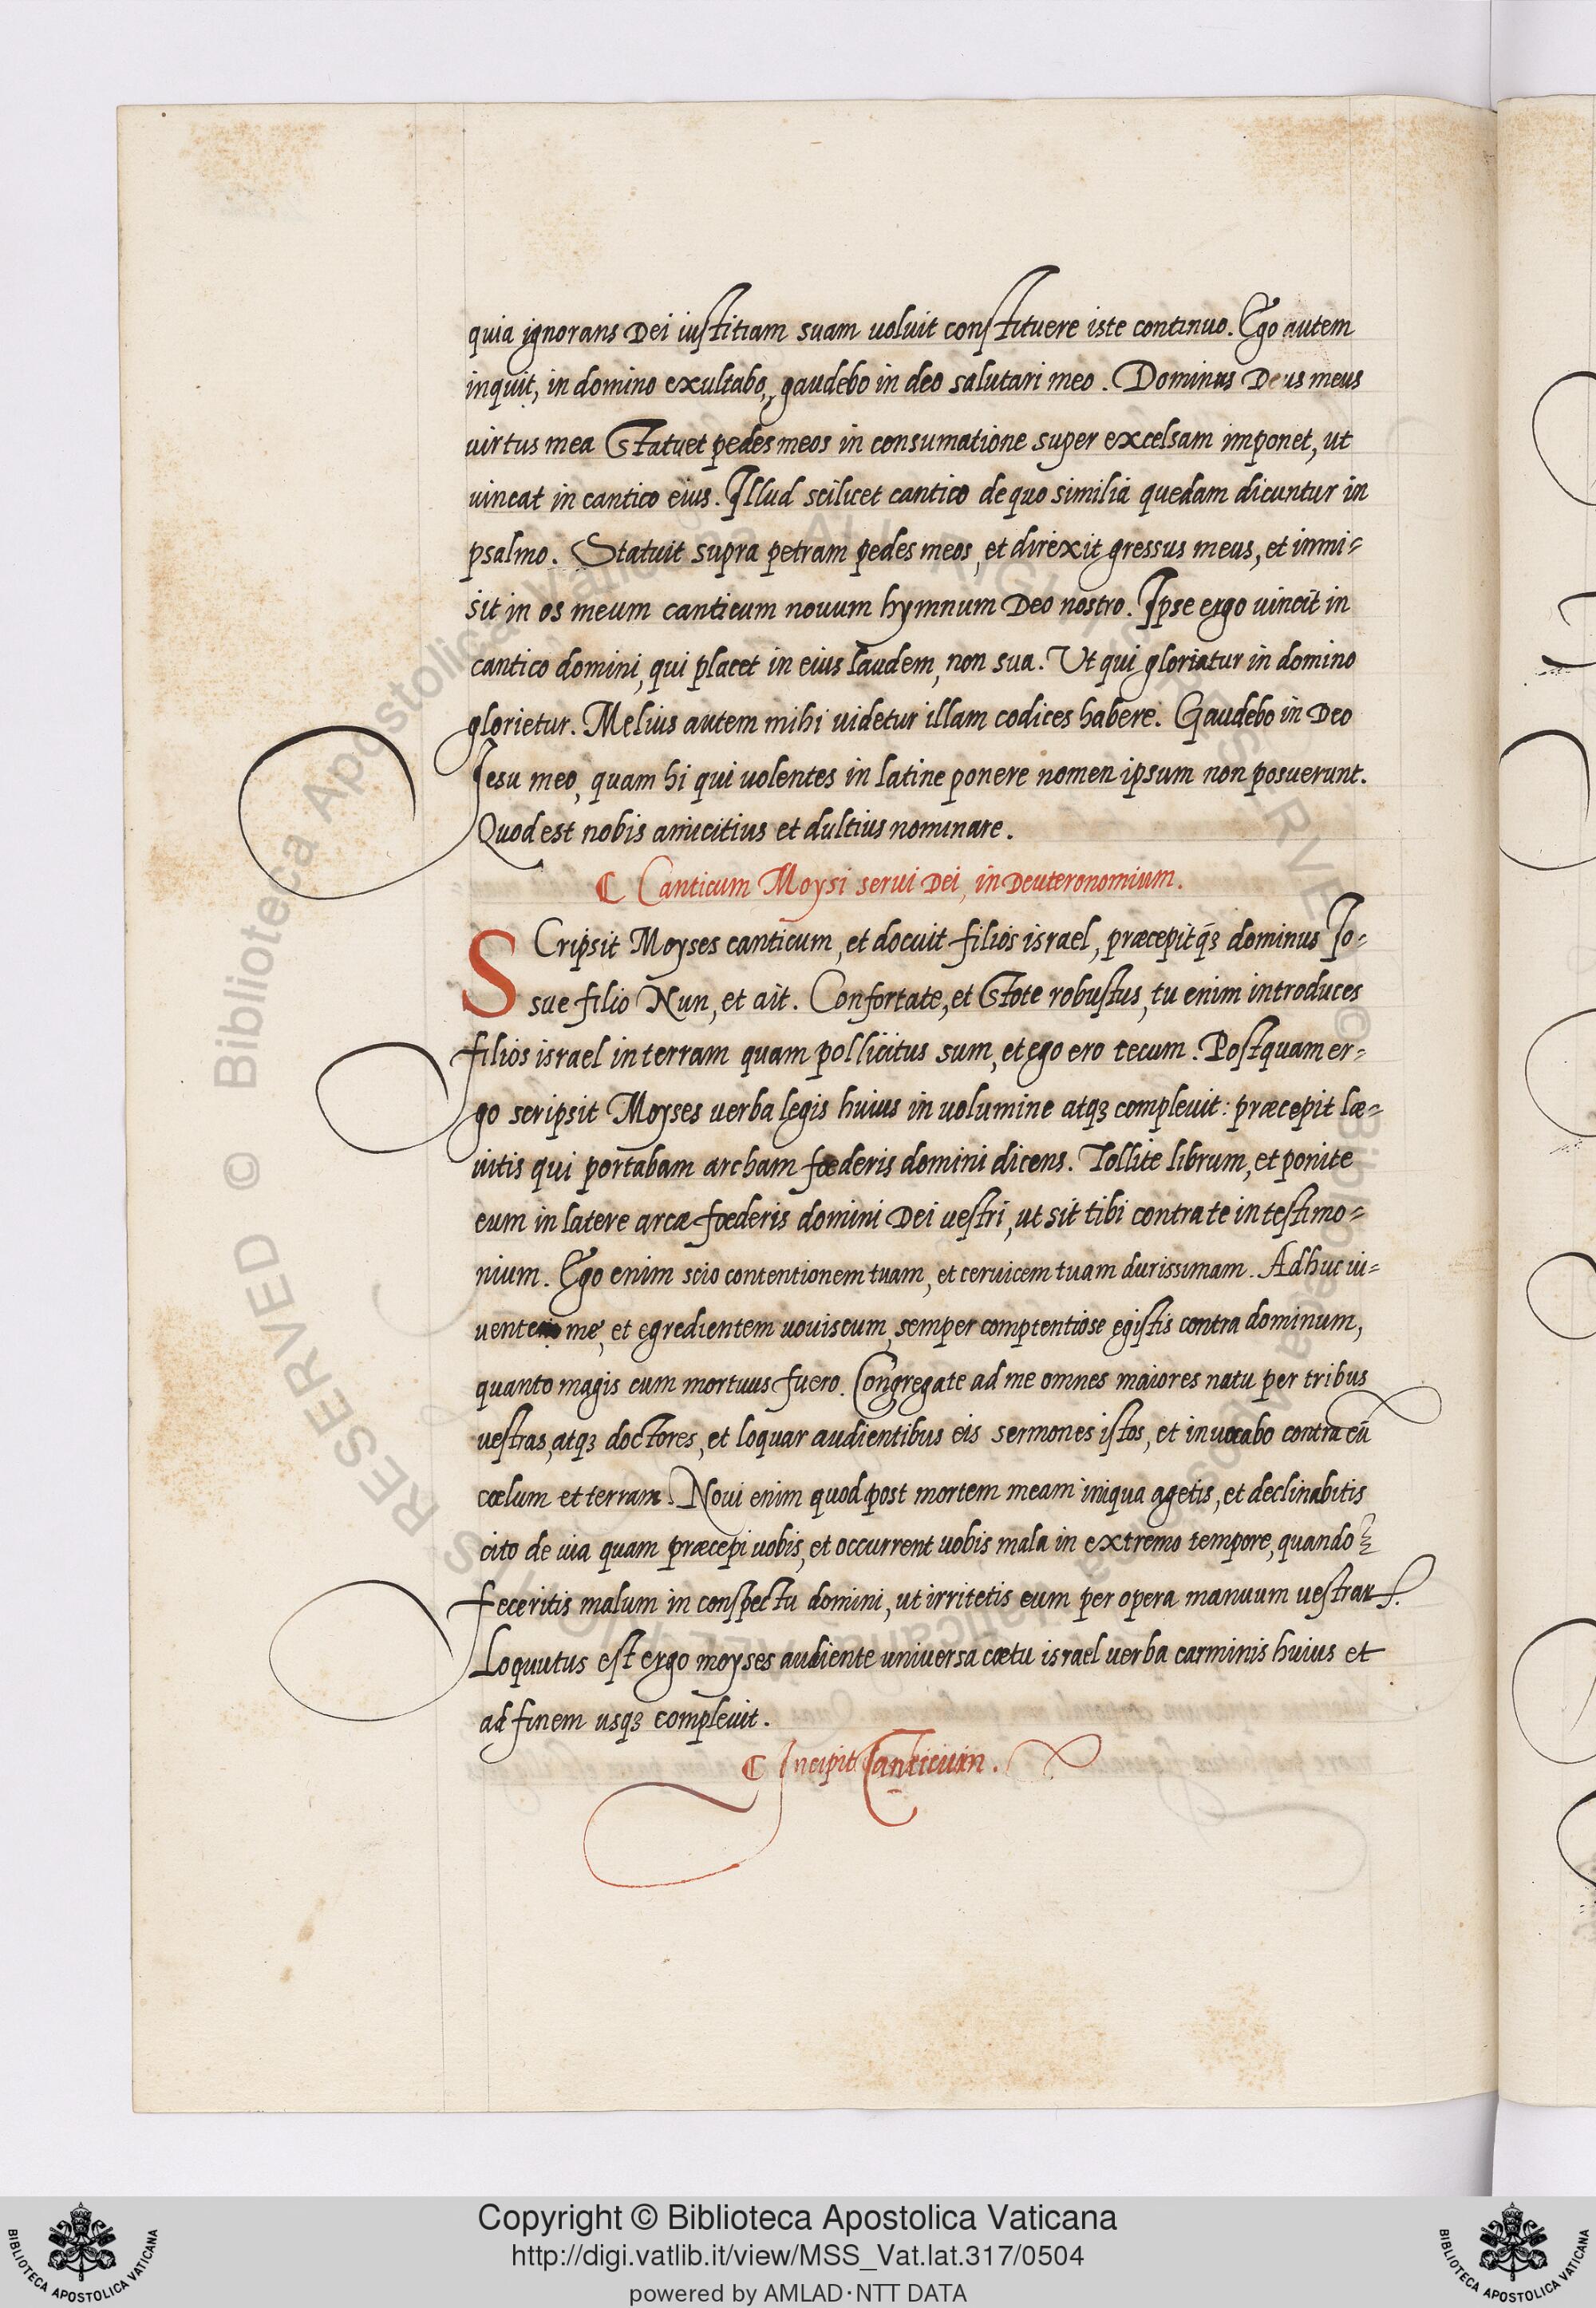 quia ignorans Dei iustitiam suam uoluit constituere iste continuo. Ego autem
inquit, in domino exultabo, gaudebo in deo salutari meo. Dominus Deus meus
uirtus mea Statuet pedes meos in consumatione super excelsam imponet, ut
uincat in cantico eius. Illud scilicet cantico de quo similia quedam dicuntur in
psalmo. Statuit supra petram pedes meos, et direxit gressus meus, et inmi=
sit in os meum canticum nouum hymnum Deo nostro. Ipse ergo uincit in
cantico domini, qui placet in eius laudem, non sua. Ut qui gloriatur in domino
glorietur. Melius autem mihi uidetur illam codices habere. Gaudebo in Deo
Iesu meo, quam hi qui uolentes in latine ponere nomen ipsum non posuerunt.
Quod est nobis amicitius et dultius nominare.
Canticum Moysi serui Dei, in Deuteronomium.
SCripsit Moyses canticum, et docuit filios israel, præcepitq́ꝫ dominus Io=
sue filio Nun, et ait. Confortate, et Stote robustus, tu enim introduces
filios israel in terram quam pollicitus sum, et ego ero tecum. Postquam er=
go scripsit Moyses uerba legis huius in uolumine atqꝫ compleuit: præcepit læ=
uitis qui portabam archam fœderis domini dicens. Tollite librum, et ponite
eum in latere arcæ fœderis domini Dei uestri, ut sit tibi contra te in testimo=
nium. Ego enim scio contentionem tuam, et ceruicem tuam durissimam. Adhuc ui=
uente me, et egredientem uouiscum, semper comptentiose egistis contra dominum,
quanto magis cum mortuus fuero. Congregate ad me omnes maiores natu per tribus
uestras, atqꝫ doctores, et loquar audientibus eis sermones istos, et inuocabo contra eū
cœlum et terram. Noui enim quod post mortem meam iniqua agetis, et declinabitis
cito de uia quam præcepi uobis, et occurrent uobis mala in extremo tempore, quando
feceritis malum in conspectu domini, ut irritetis eum per opera manuum uestraꝝ.
Loquutus est ergo moyses audiente uniuersa cœtu israel uerba carminis huius et
ad finem usqꝫ compleuit.
Incipit Canticum.
Copyright © Biblioteca Apostolica Vaticana
http://digi.vatlib.it/view/MSS_Vat.lat.317/0504
powered by AMLAD·NTT DATA